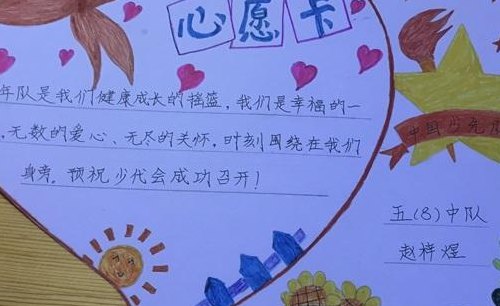 心愿卡
年队是我们健康成长的摇篮，我们是幸福的一
，无数的爱心、无尽的关怀，时刻围绕在我们
身旁。预祝少代会成功召开！
中国少先
五(8)中队
赵梓煜